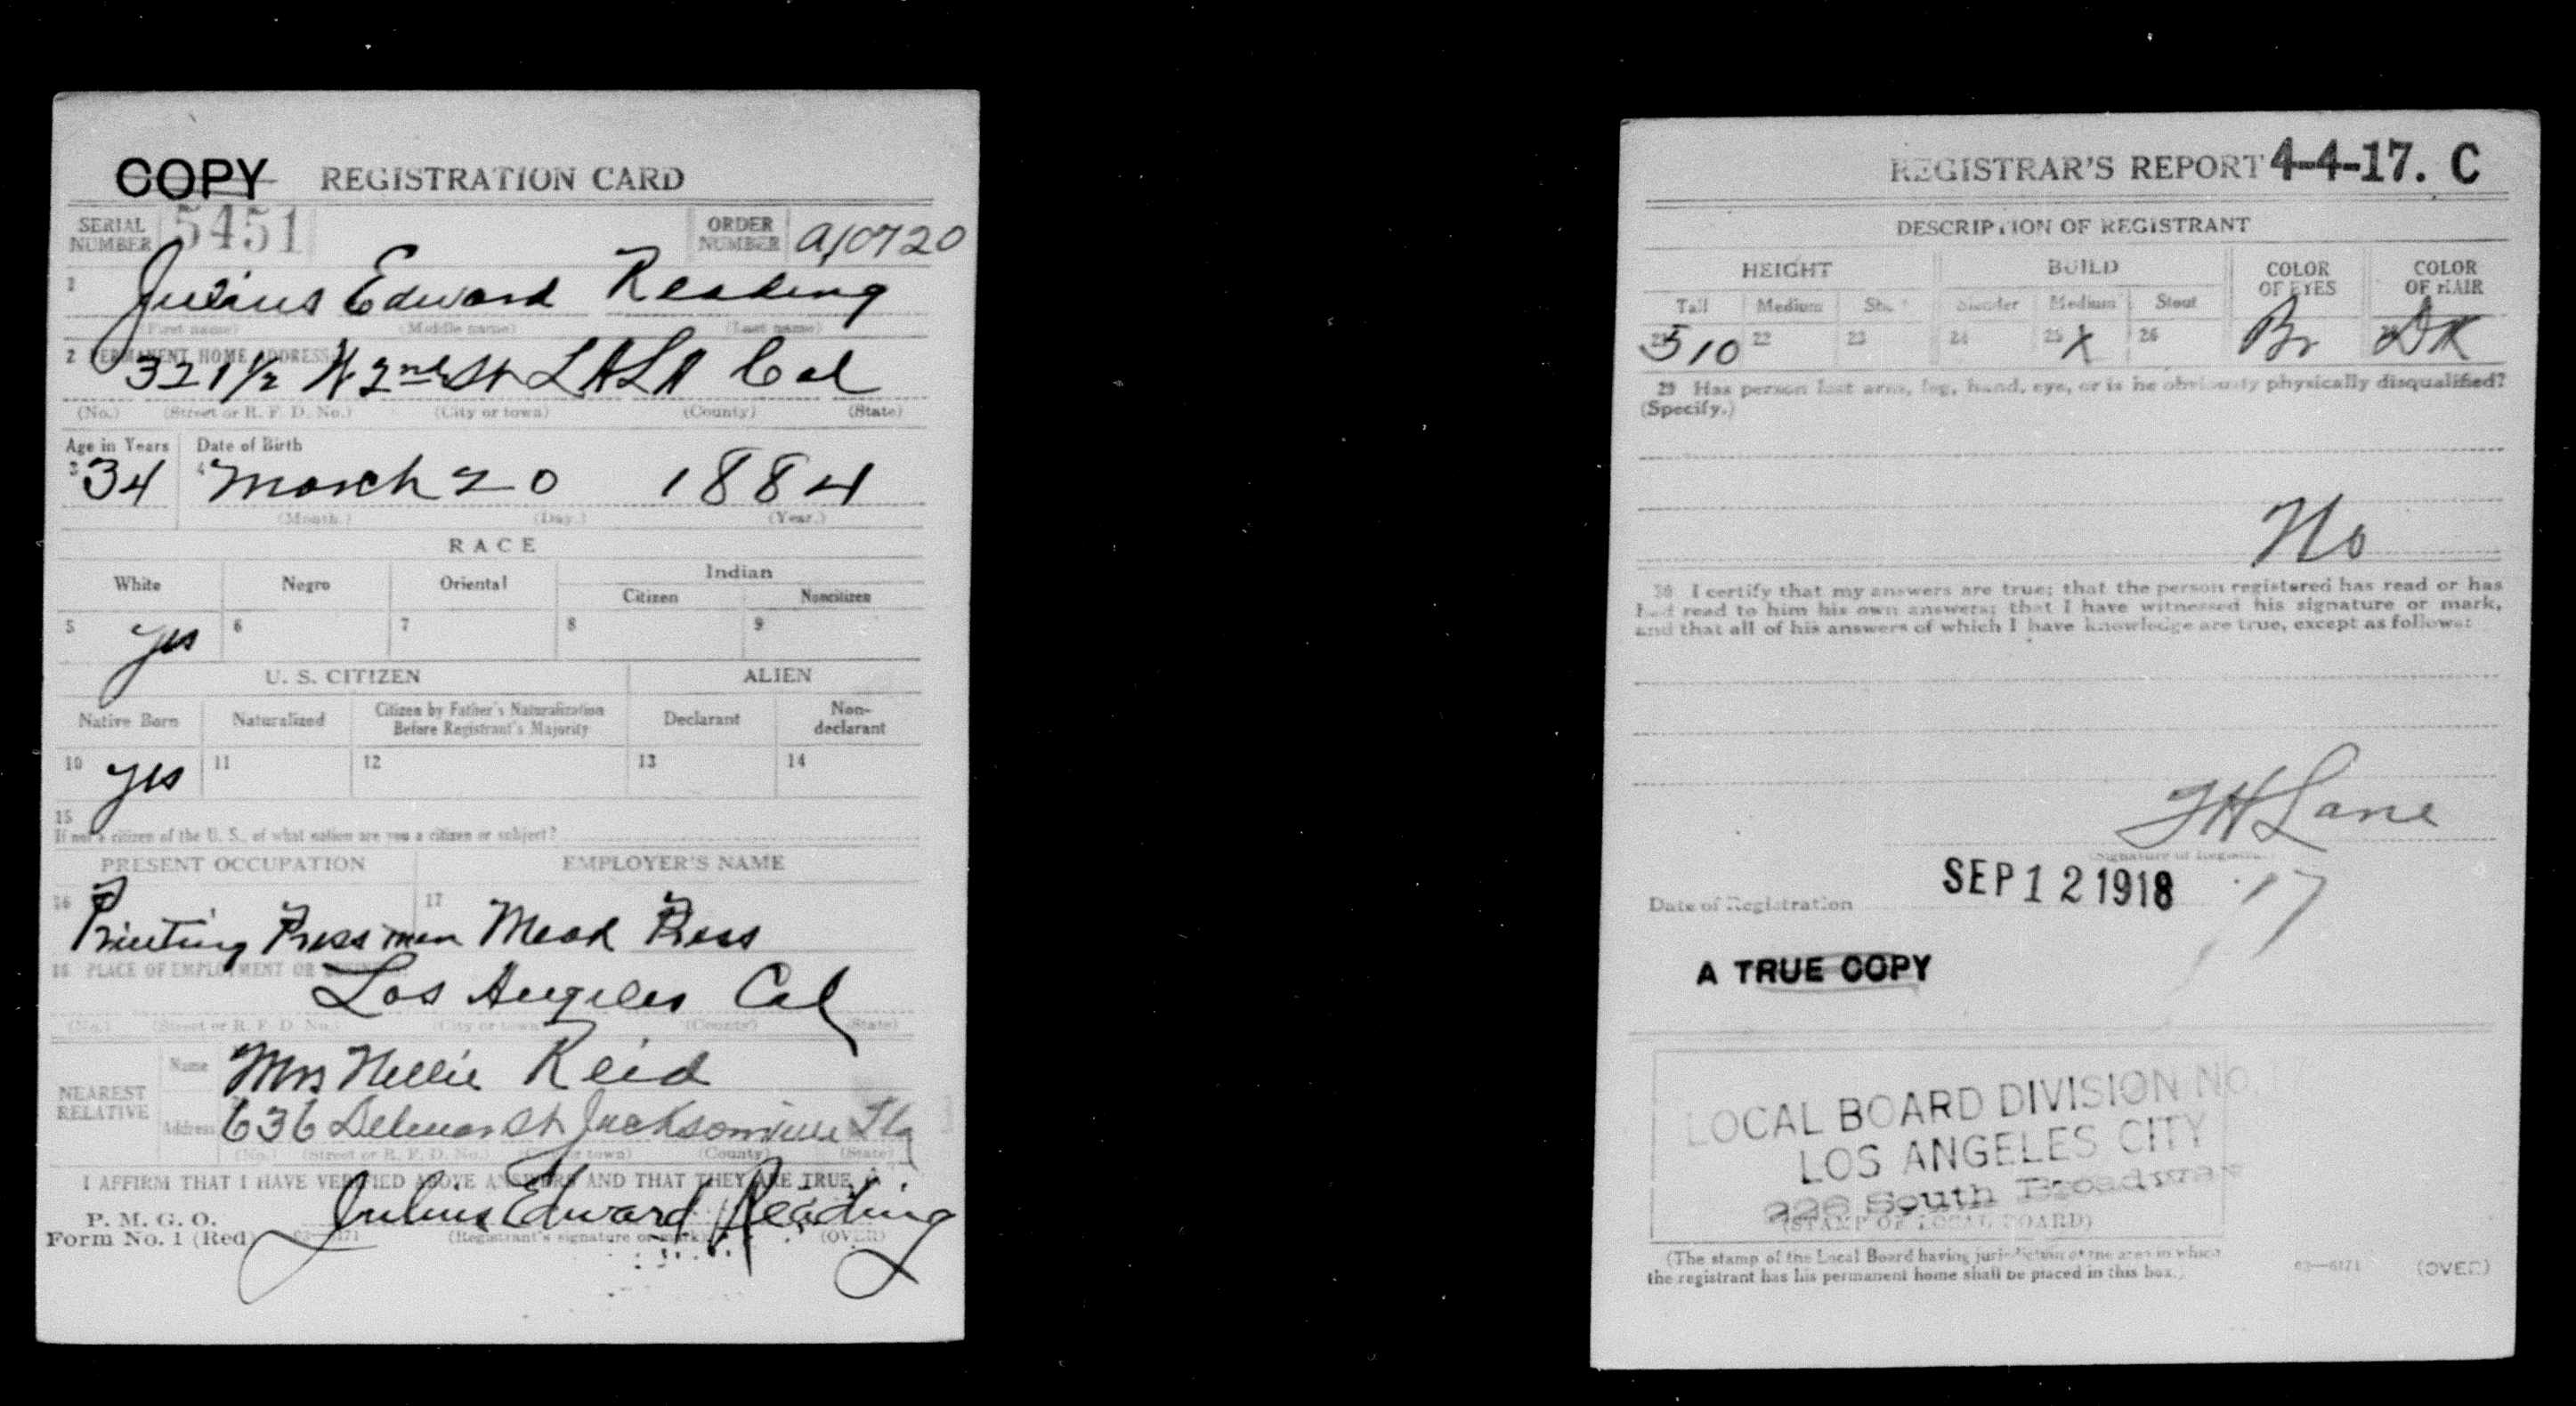 COPY REGISTRATION CARD
SERIAL NUMBER 5451 ORDER NUMBER A10720
1 Julius Edward Reading
(First name) (Middle name) (Last name)
2 PERMANENT HOME ADDRESS
321 1/2 W 2nd St LA LA Cal
(No.) (Street or R. F. D. No.) (City or town) (County) (State)
Age in Years Date of Birth
3 34 4 March 20 1884
(Month.) (Day.) (Year.)
RACE
White Negro Oriental Indian
Citizen Noncitizen
5 yes 6 7 8 9
U. S. CITIZEN ALIEN
Native Born Naturalized Citizen by Father's Naturalization Before Registrant's Majority Declarant Non-declarant
10 yes 11 12 13 14
15
If not a citizen of the U. S., of what nation are you a citizen or subject?
PRESENT OCCUPATION EMPLOYER'S NAME
16 Printing Pressman 17 Press
18 PLACE OF EMPLOYMENT OR BUSINESS:
Los Angeles Cal
(No.) (Street or R. F. D. No.) (City or town) (County) (State)
NEAREST RELATIVE
Name Mrs Nellie Reid
Address 636 St Jacksonville
(No.) (Street or R. F. D. No.) (City or town) (County) (State)
I AFFIRM THAT I HAVE VERIFIED ABOVE ANSWERS AND THAT THEY ARE TRUE
P. M. G. O.
Form No. 1 (Red) 03—6171 Julius Edward Reading
(Registrant's signature or mark) (OVER)
REGISTRAR'S REPORT 4-4-17. C
DESCRIPTION OF REGISTRANT
HEIGHT BUILD COLOR OF EYES COLOR OF HAIR
Tall Medium Short Slender Medium Stout
21 5 10 22 23 24 25 X 26 Br DK
29 Has person lost arm, leg, hand, eye, or is he obviously physically disqualified?
(Specify.)
No
30 I certify that my answers are true; that the person registered has read or has
had read to him his own answers; that I have witnessed his signature or mark,
and that all of his answers of which I have knowledge are true, except as follows:
Lane
(Signature of Registrar)
Date of Registration SEP 12 1918 17
A TRUE COPY
LOCAL BOARD DIVISION No.
LOS ANGELES CITY
226 South Broadway
(STAMP OF LOCAL BOARD)
(The stamp of the Local Board having jurisdiction of the area in which
the registrant has his permanent home shall be placed in this box.) 03—6171 (OVER)